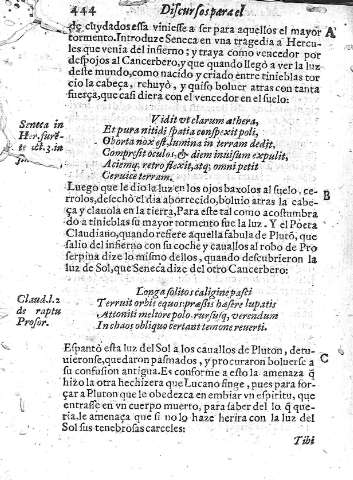 444 Discursos para el
de cuydados essa viniesse a ser para aquellos el mayor A
tormento. Introduze Seneca en vna tragedia a Hercu-
les que venia del infierno; y traya como vencedor por
despojos al Cancerbero, y que quando llegò a ver la luz
deste mundo, como nacido y criado entre tinieblas tor
cio la cabeça, rehuyò, y quiso boluer atras con tanta
fuerça, que casi diera con el vencedor en el suelo:
Seneca in
Her. fur.
te act. 3. in
Vidit vt clarum æthera,
Et pura nitidi spatia conspexit poli,
Oborta nox est, lumina in terram dedit,
Compresit oculos, & diem inuisum expulit,
Aciemq; retro flexit, atq; omni petit
Ceruice terram.
Luego que le dio la luz en los ojos baxolos al suelo, ce-
rrolos, desechò el dia aborrecido, boluio atras la cabe- B
ça y clauola en la tierra, Para este tal como acostumbra
do a tinieblas su mayor tormento fue la luz. Y el Poeta
Claudiano, quando refiere aquella fabula de Plutõ, que
salio del infierno con su coche y cauallos al robo de Pro
serpina dize lo mismo dellos, quando descubrieron la
luz de Sol, que Seneca dize del otro Cancerbero:
Claud. l. 2
de raptu
Proser.
Longa solitos caligine pasci
Terruit orbis equos: præssis hæsere lupatis
Attoniti meliore polo. rursusq, verendum
In chaos obliquo certant temone reuerti.
Espantò esta luz del Sol a los cauallos de Pluton, detu- C
uieronse, quedaron pasmados, y procuraron boluerse a
su confusion antigua. Es conforme a esto la amenaza q̃
hizo la otra hechizera que Lucano finge, pues para for-
çar a Pluton que le obedezca en embiar vn espiritu, que
entrasse en vn cuerpo muerto, para saber del lo q̃ que-
ria, le amenaça que si no lo haze herira con la luz del
Sol sus tenebrosas carceles:
Tibi